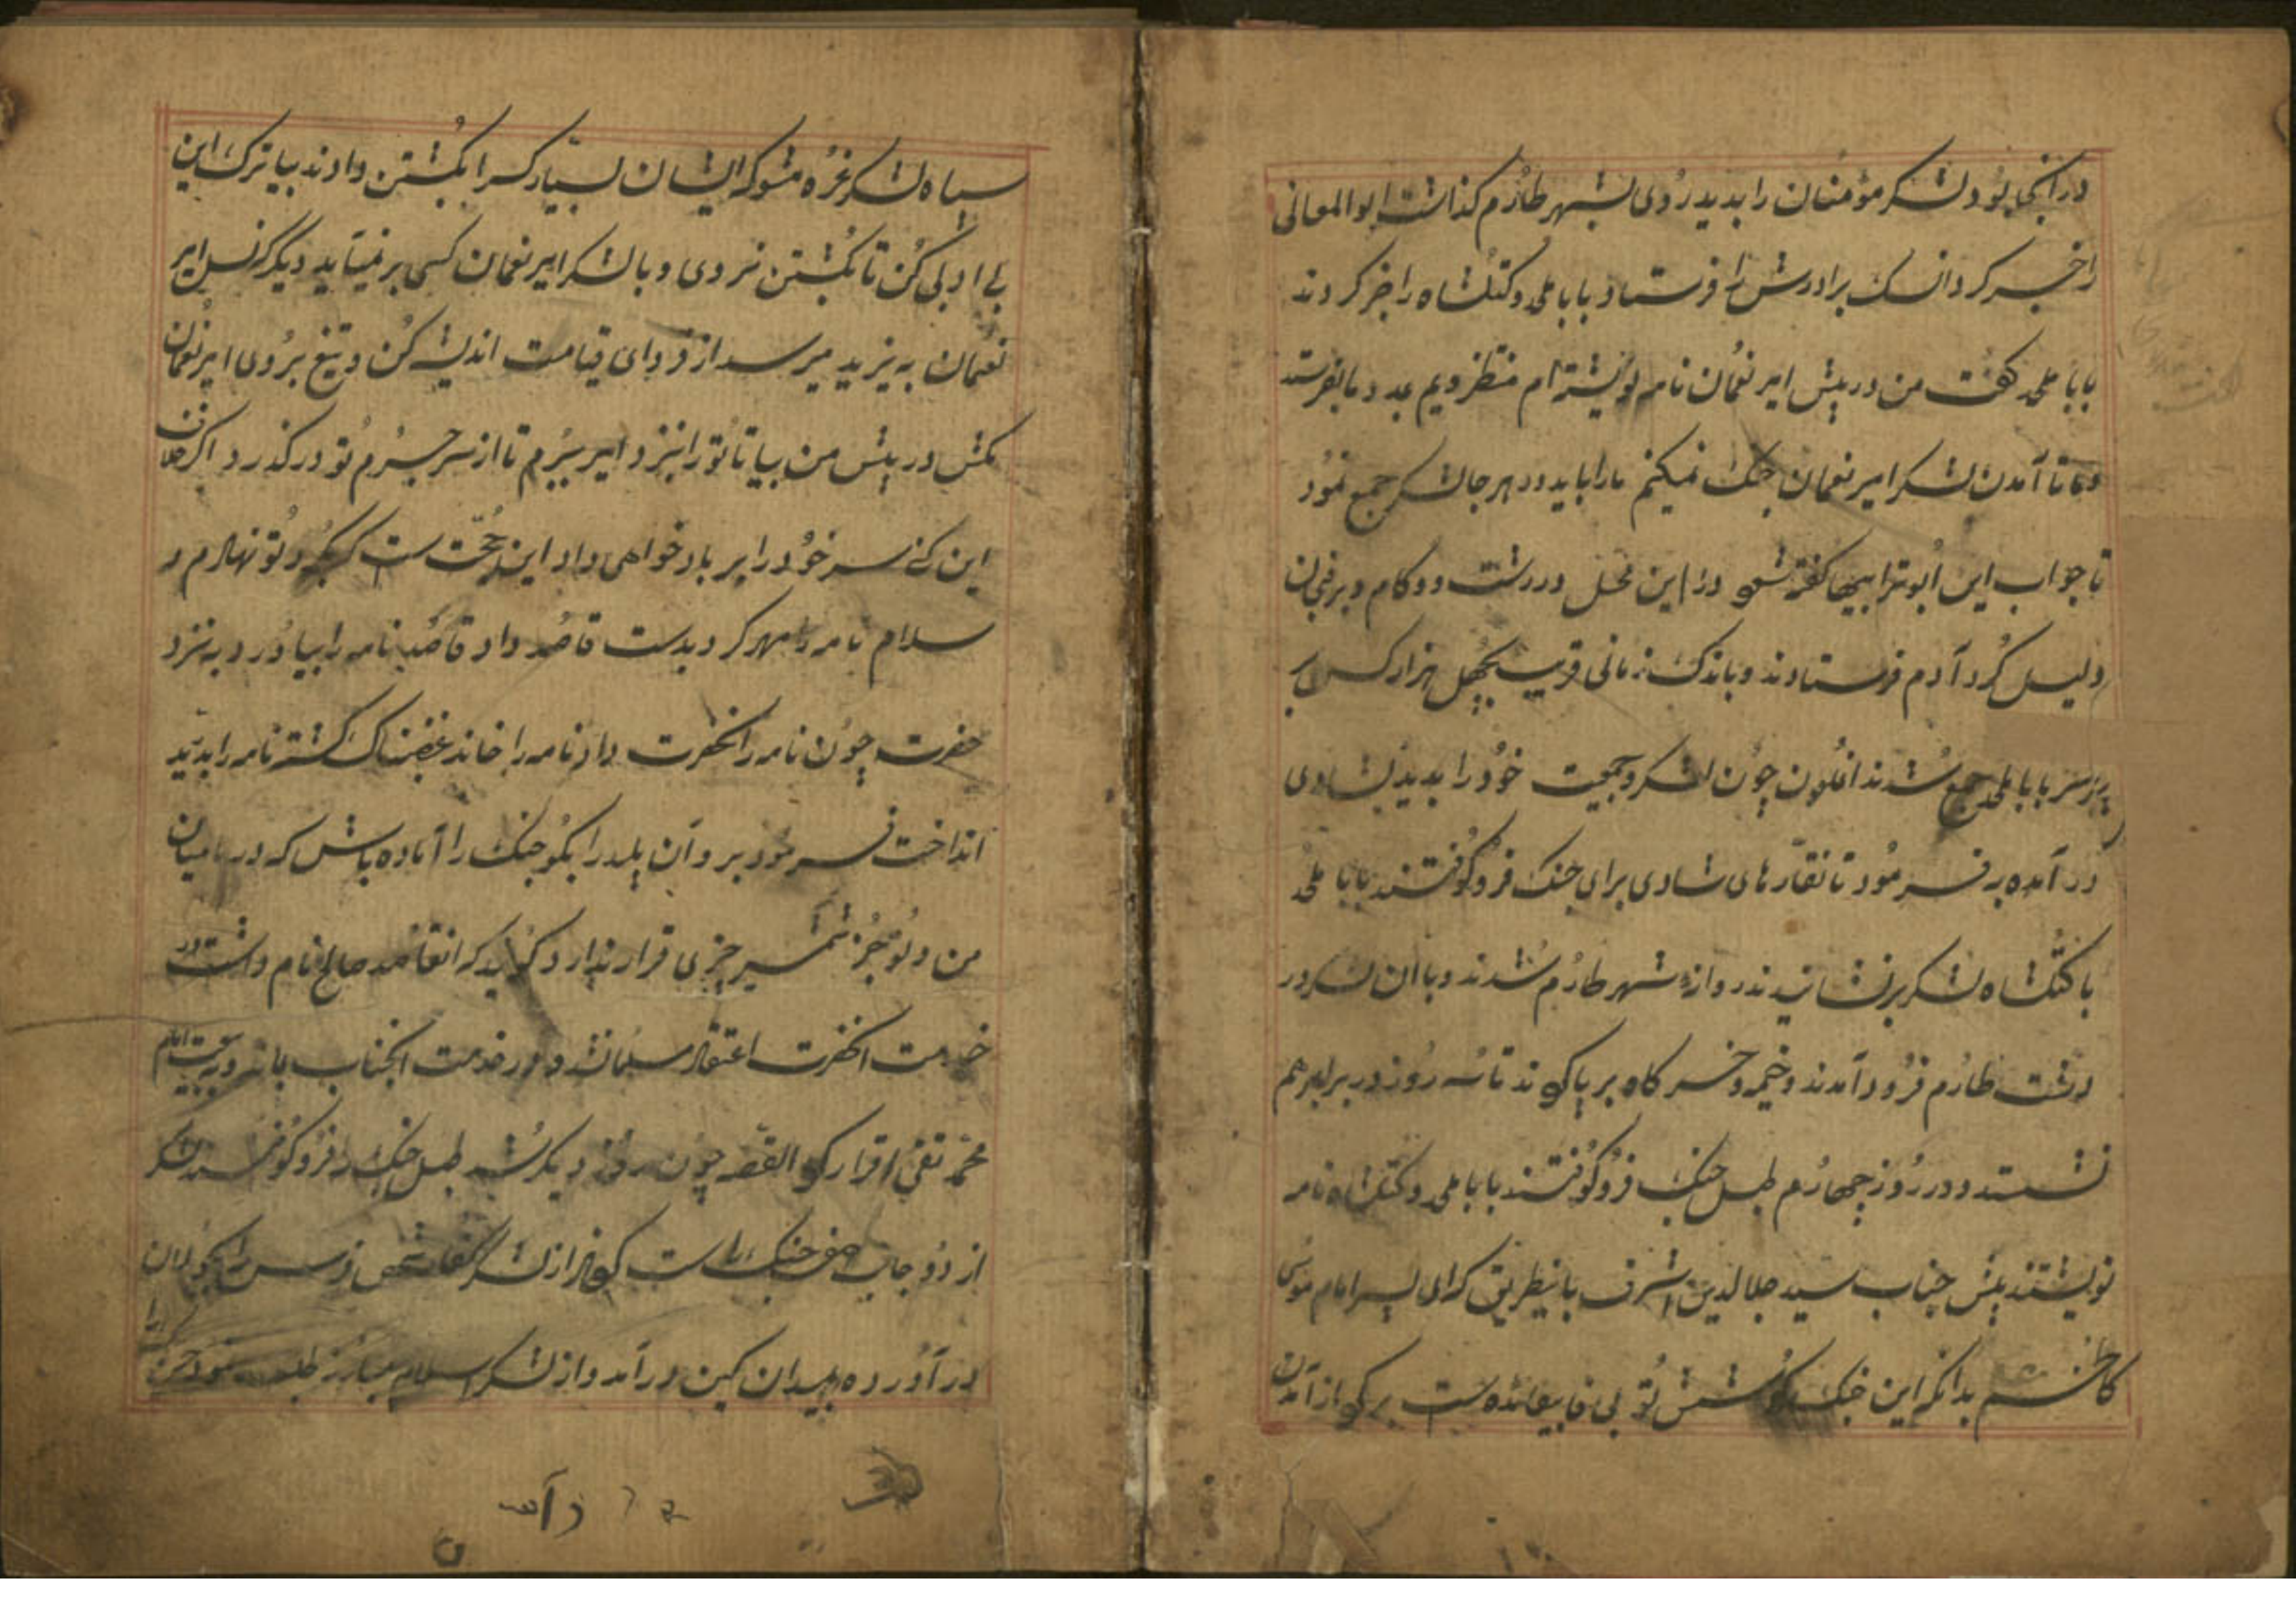 در آنجا بود لشکر مؤمنان را بدید رُوی بشهر طارُم کذاشت ابوالمعالی
را خبر کرد برادرش را فرستاد بابا ملحد و کتکشاه را خبر کردند
بابا ملحد کفت من در پیش امیر نعُمان نامه نویشته‌ام منتظر ویم مدد ما بفرستد
و ما تا آمدن لشکر امیر نعمان جنک نمیکنم ما را باید در هر جا لشکر جمع نمُود
تا جواب این اُبوترابیها کفته شود در این محل در رشت و
دلیل کُرد آدم فرستادند و باندک زمانی قریب بچهل هزار کس بر
سر بابا ملحد جمع شُدند چوُن لشکر و جمیّت خوُد را بدید بشادی
در آمده بفرمُود تا نقاّرهای شادی برای جنک فرُوکُوفتند بابا ملحد
با کتکشاه لشکر برنشانیدند دروازهٔ شهر طارُم شدند و با آن لشکر در
دشت طارُم فرُود آمدند و خیمه و خرکاه بر پا کردند تا سه رُوز در برابر هم
نشستند و در رُوز چهارُم طبل جنک فرُوکُوفتند بابا ملحد و کتکشاه نامه
نویشتند پیش جناب سیّد جلالدین اشرف باینطریق که ای پسر امام مُوسی
کاظم بدانکه این جنک کوُشش تُو بی فایده است برکرد از آمدن
سپاه لشکر غرُه مشو که ایشان بسیار کس را بکُشتن دادند بیا ترک این
بی ادبی کُن تا بکُشتن نروی و با لشکر امیر نعُمان کسی بر نمیآید دیگر نسل امیر
نعُمان به یزید میرسد از فردای قیامت اندیشه کُن و تیغ برُوی امیر نعُمان
مکش در پیش من بیا تا تُو را بنزد امیر ببرُم تا از سر جرُم تُو درکذرد اکر خلاف
این کنی سر خوُد را بر باد خواهی داد این حُجّت است که بکرد تُو نهادم و
سلام نامه را مهر کرد بدست قاصُد داد قاصُد نامه را بیاوُرد به نزد
حضرت چوُن نامه را بحضرت داد نامه را خاند غضبناک کشته نامه را بدرّید
انداخت فرمُود برو آن پلید را بکُو جنک را آماده باش که در میان
من و تُو جُز شمشیر چیزی قرار ندارد کویند که آنقاصد صالح نام داشت در
خدمت آنحضرت اعتقاد مسلمان شد و در خدمت آنجناب بماند و به امام
محمّد تقی اقرار کرد القصّه چوُن رُوز دیکر شُد طبل جنک را فرُوکُوفتند لشکر
از دُو جانب صف جنک راست کردند از لشکر کفار شخصی فرس را بجُولان
در آوُرده بمیدان کین در آمد و از لشکر اسلام مبارُز طلب نمود
در آمد